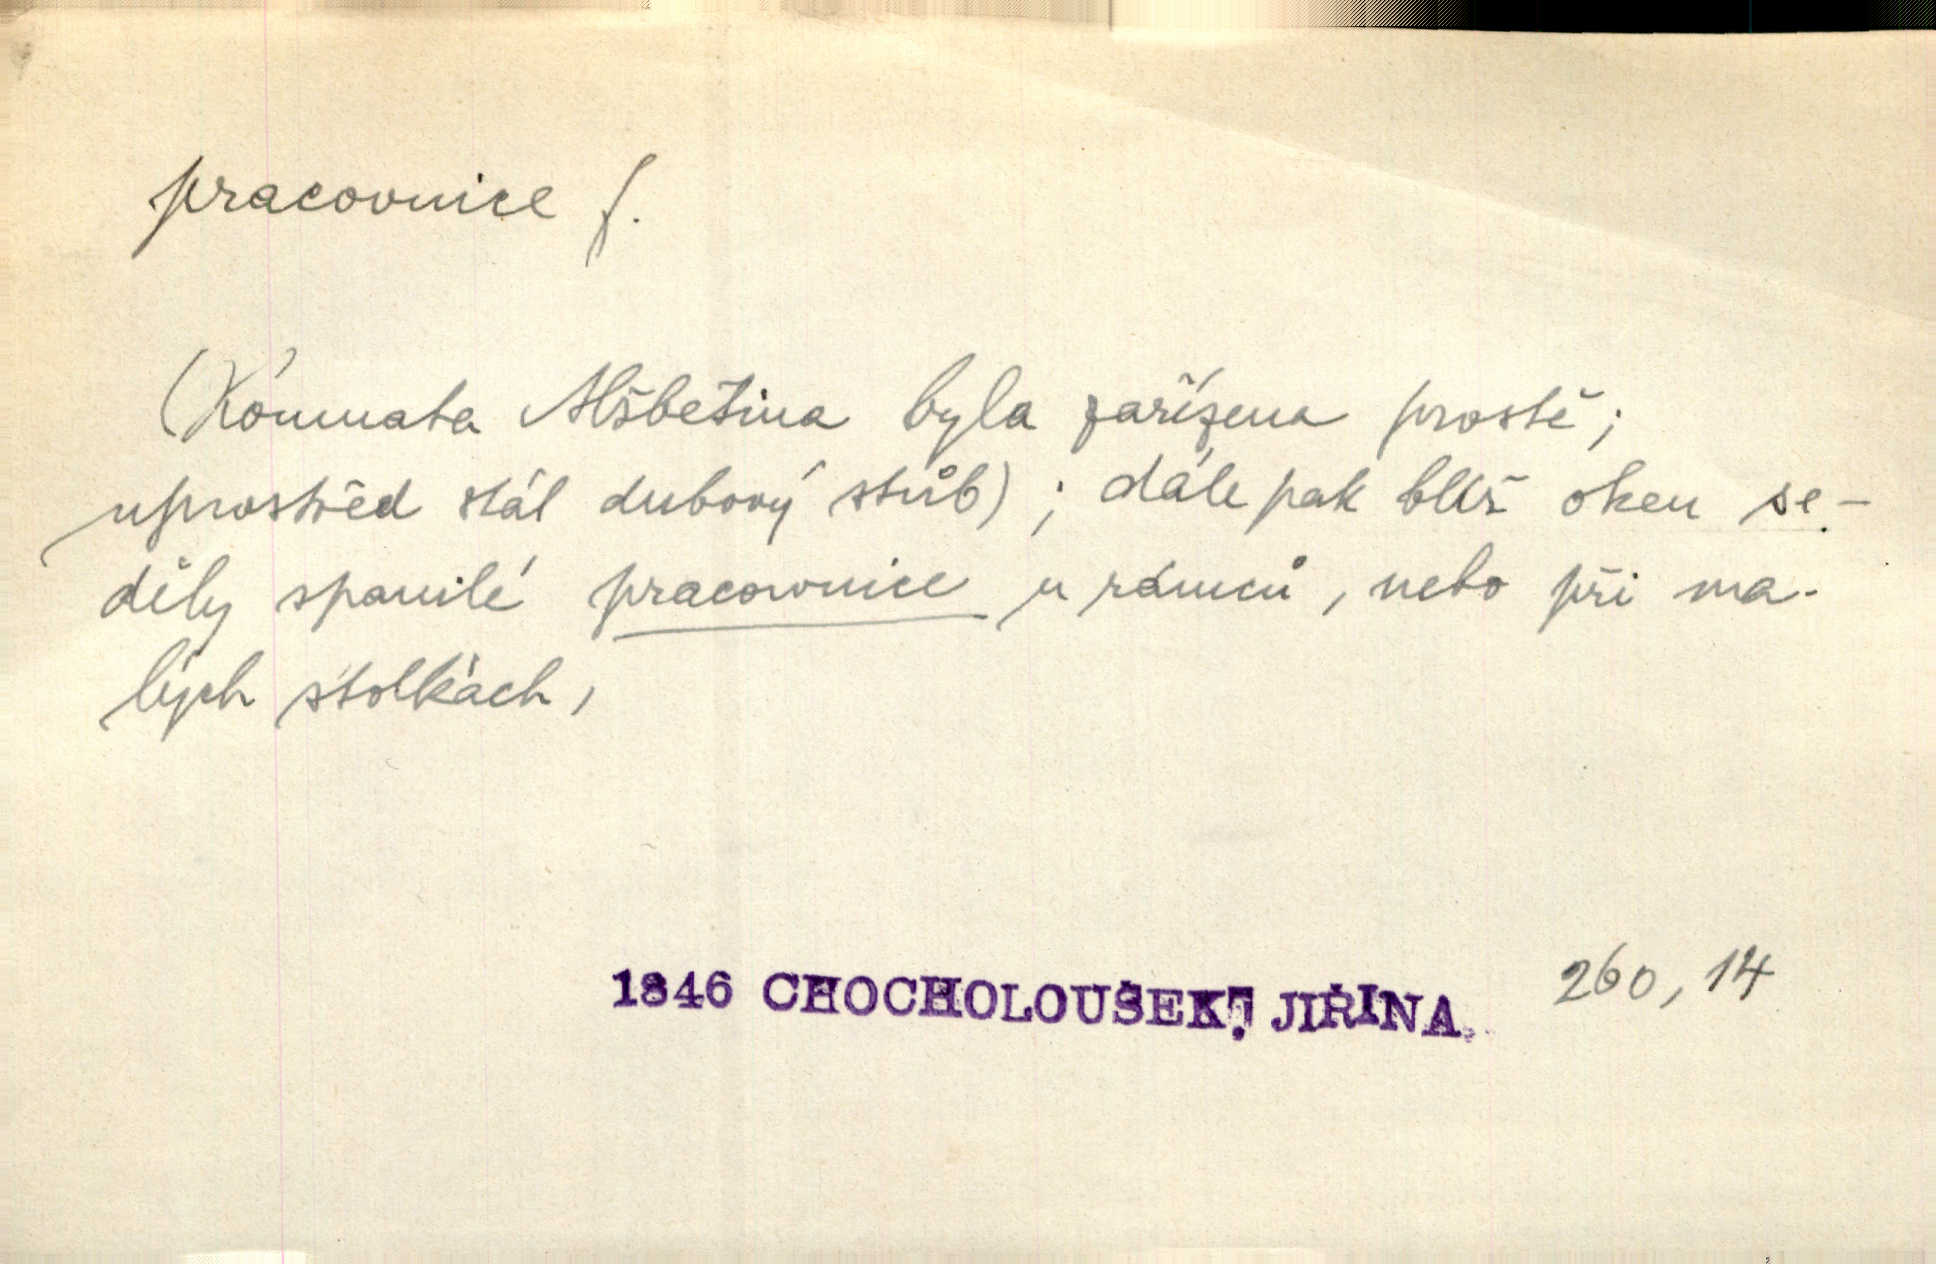 pracovnice f.
(Kómnata Alžbětina byla zařízena prostě;
uprostřed stál dubový stůl); dále pak blíž oken se-
děly spanilé pracovnice u rámců, nebo při ma-
lých stolkách,
1846 CHOCHOLOUŠEK, JIŘINA. 260, 14